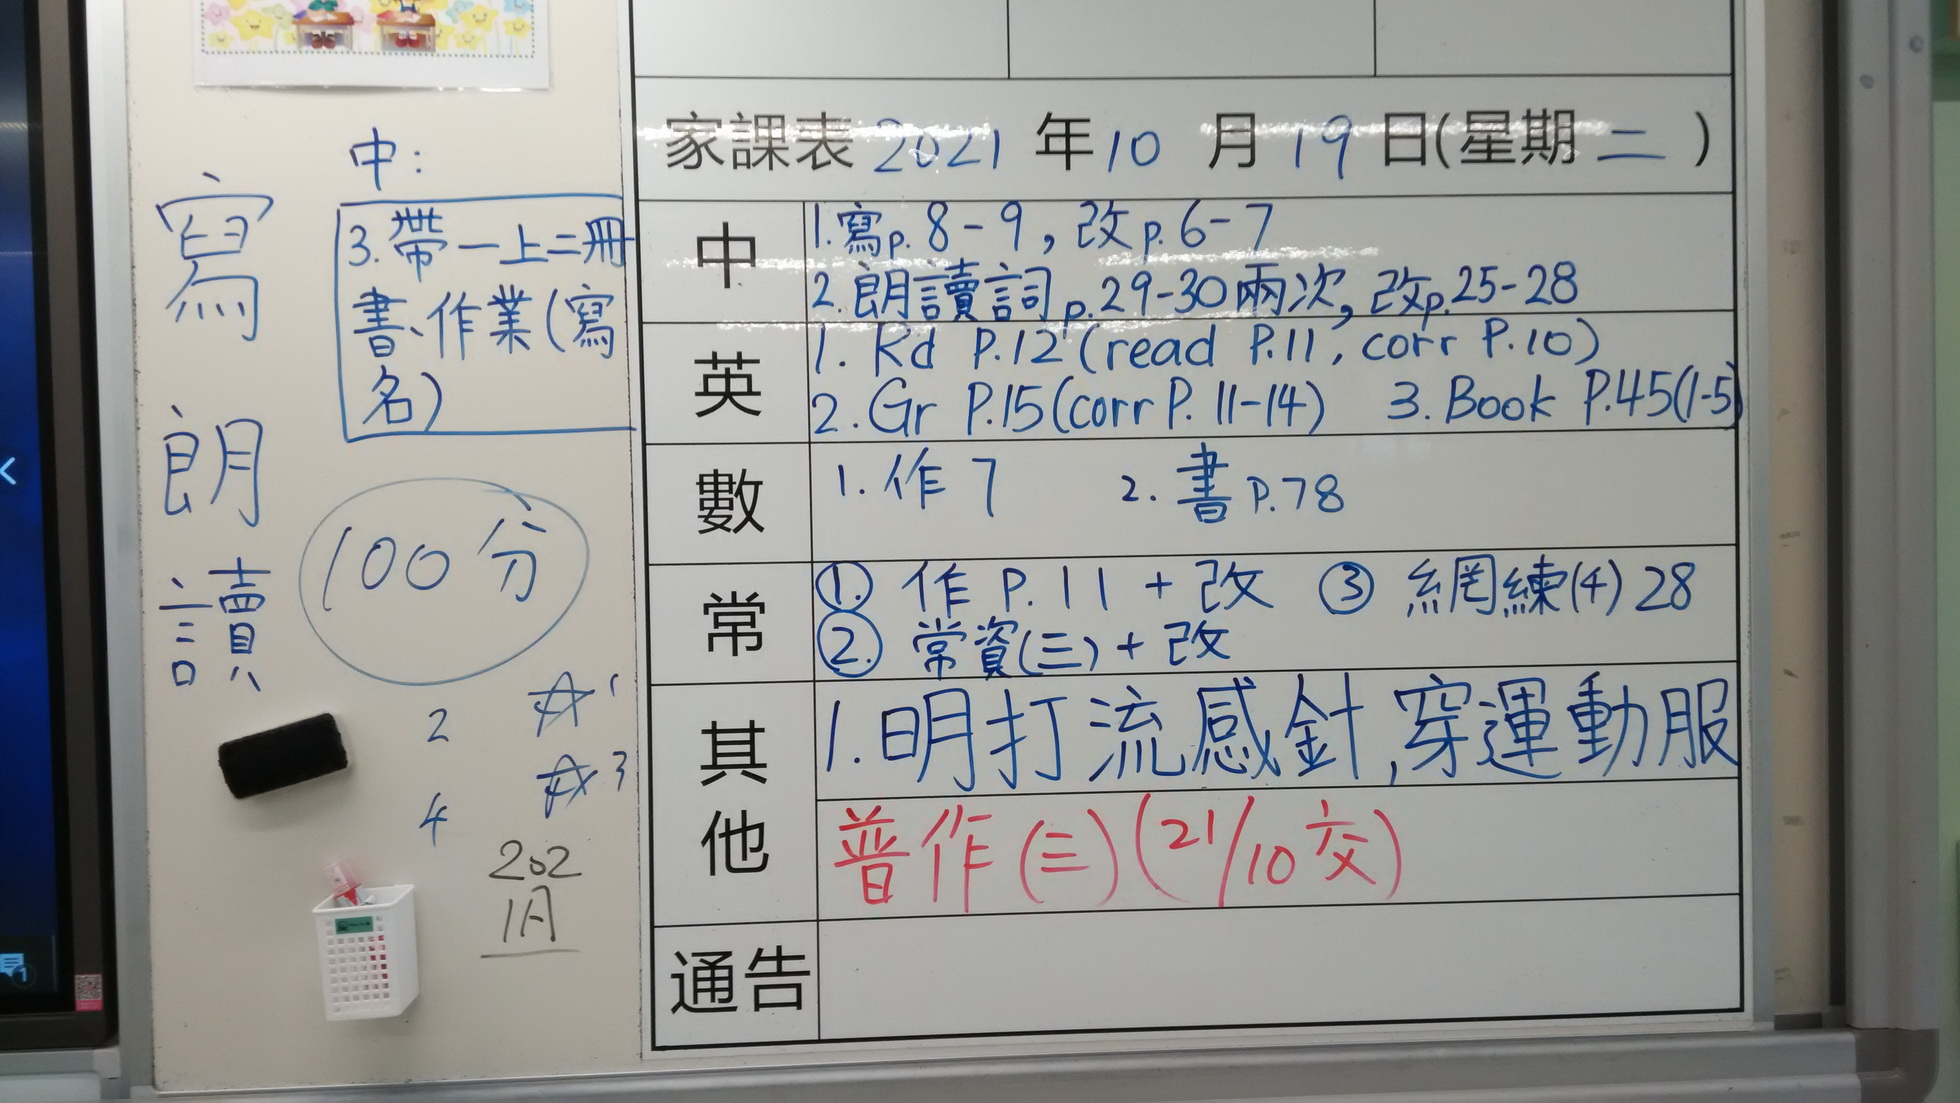 家課表 2021 年 10 月 19 日(星期 二 )
中
1.寫p.8-9,改p.6-7
2.朗讀詞p.29-30兩次,改p.25-28
英
1. Rd P.12(read P.11, corr P.10)
2. Gr P.15(corr P. 11-14) 3. Book P.45(1-5)
數
1. 作 7 2. 書 P.78
常
①. 作 P. 11 + 改 ③ 網練(4) 28
②. 常資(三) + 改
其他
1.明打流感針,穿運動服
普作(三)(21/10交)
通告
中:
3.帶一上二冊
書、作業(寫
名)
寫
朗
讀
100分
2 1
4 3
202
1月
1